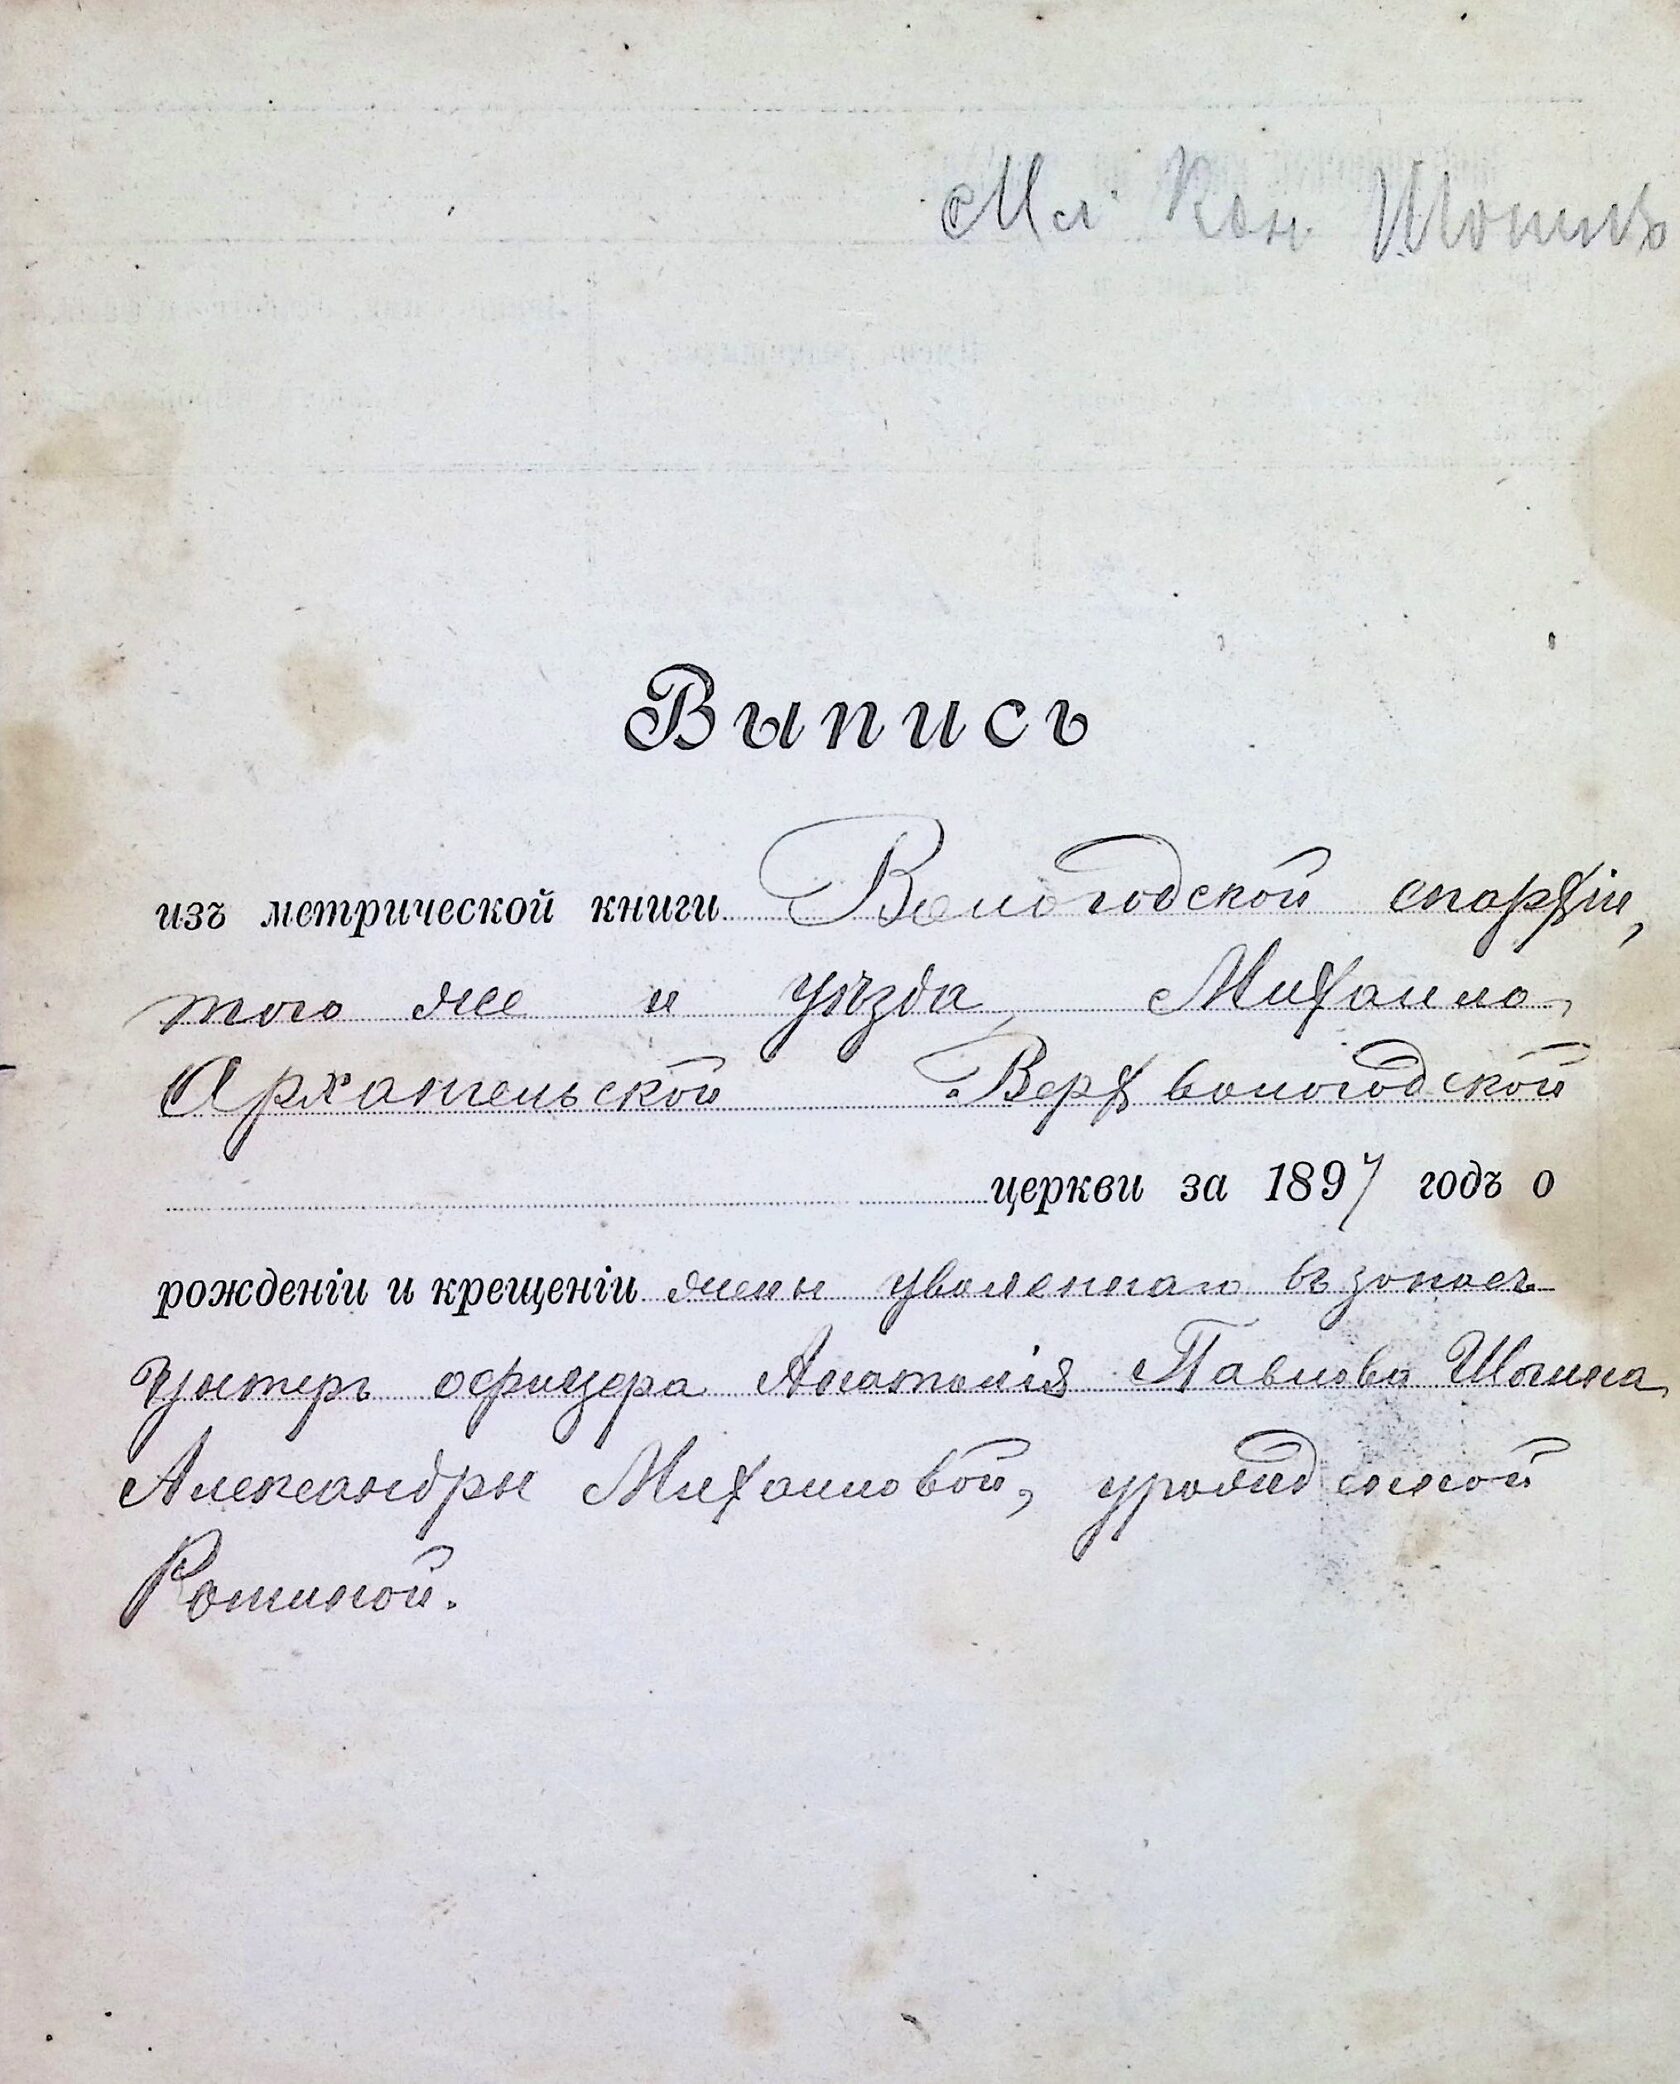 Мл. Кон. Шониъ
Выпись
изъ метрической книги Вологодской епархіи,
того же и уѣзда, Михаило-
Архангельской Верхвологодской
церкви за 1897 годъ о
рожденіи и крещеніи жены уволеннаго въ запасъ
унтеръ офицера Анатолія Павлова Шонина
Александры Михаиловой, урожденной
Рошиной.